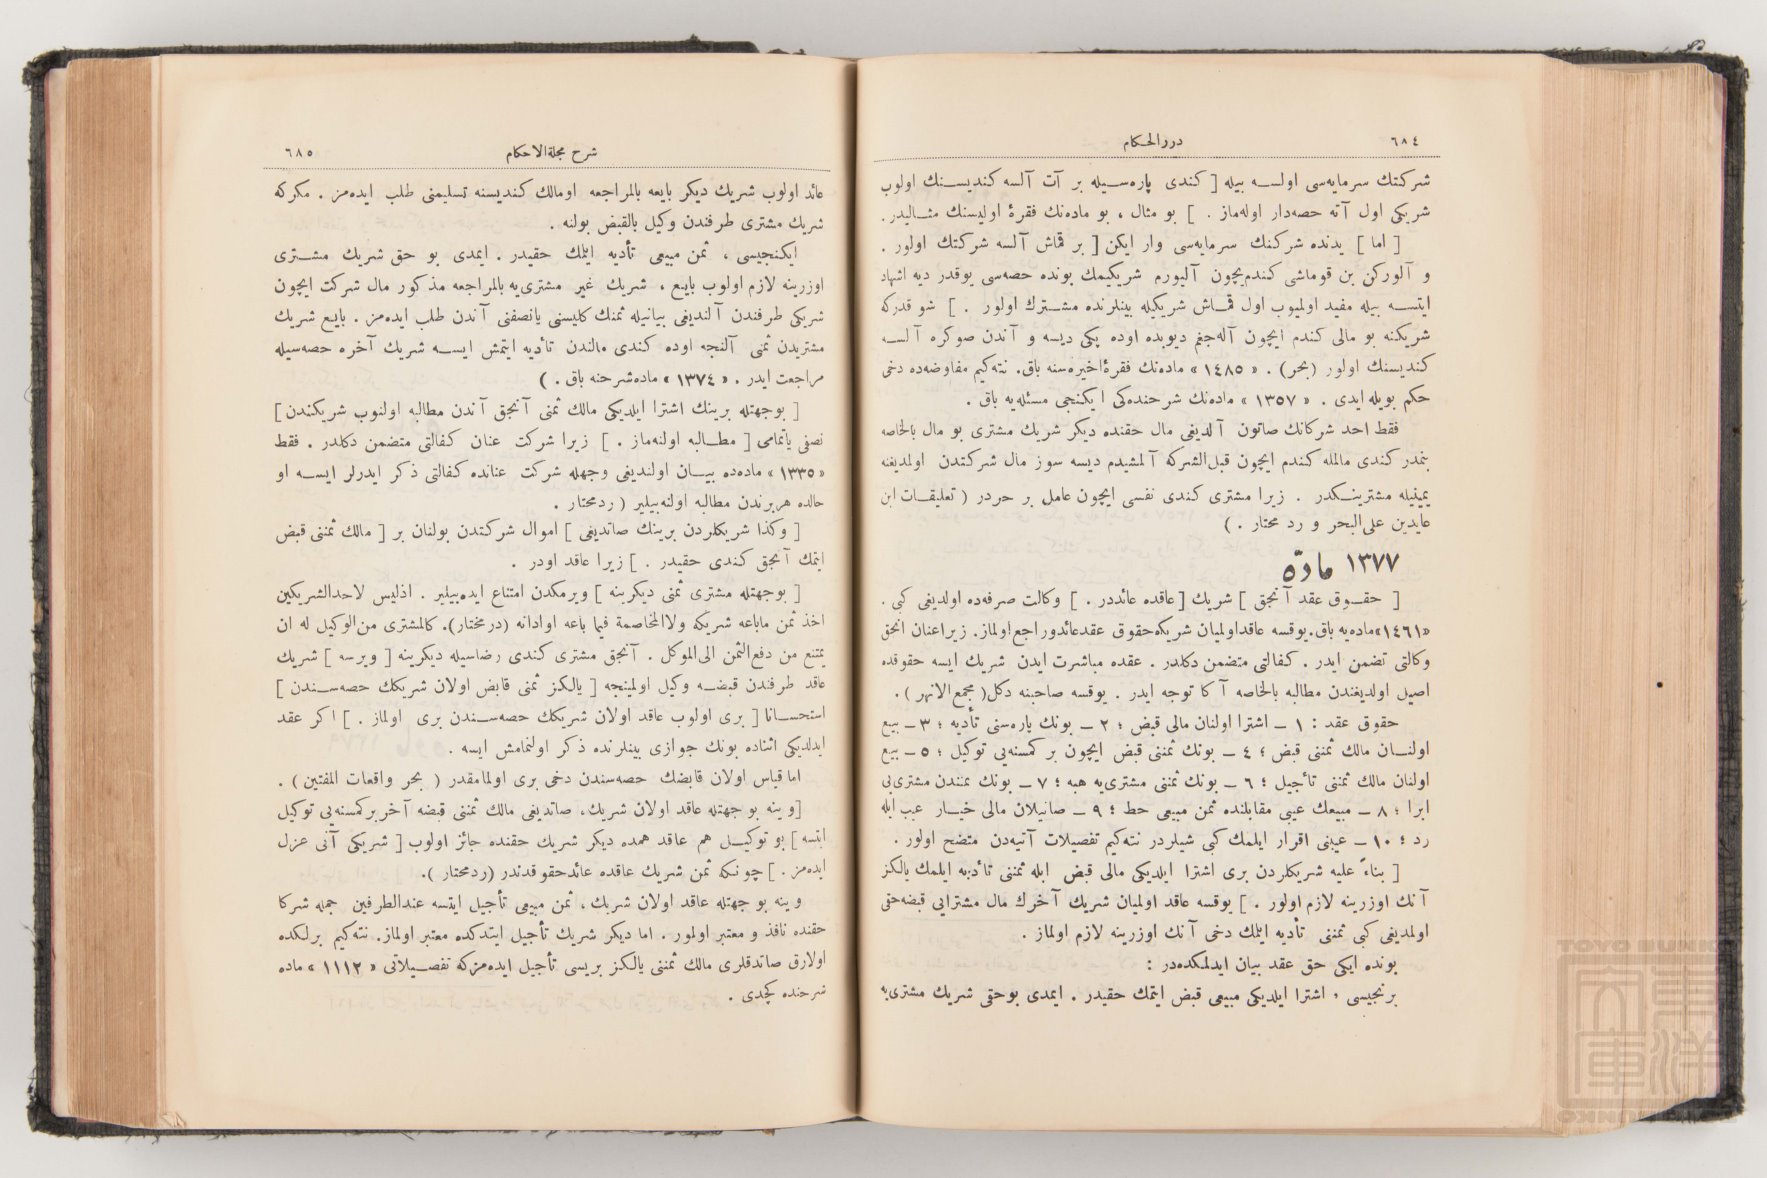 ٦٨٤
درر الحكام
شركتك سرمايه‌سى اولسه بيله [ كندى پاره‌سيله بر آت آلسه كنديسنك اولوب
شريكى اول آته حصه‌دار اوله‌ماز . ] بو مثال ، بو ماده‌نك فقرۀ اوليسنك مثاليدر .
[ اما ] يدنده شركتك سرمايه‌سى وار ايكن [ بر قماش آلسه شركتك اولور .
و آلوركن بن قوماشى كندم‌يچون آليورم شريكيمك بونده حصه‌سى يوقدر ديه اشهاد
ايتسه بيله مفيد اولميوب اول قماش شريكيله بينلرنده مشترك اولور . ] شو قدركه
شريكنه بو مالى كندم ايچون آله‌جغم ديوبده اوده پكى ديسه و آندن صوكره آلسه
كنديسنك اولور (بحر) . « ١٤٨٥ » ماده‌نك فقرۀ اخيره‌سنه باق . نته‌كيم مفاوضه‌ده دخى
حكم بويله ايدى . « ١٣٥٧ » ماده‌نك شرحنده‌كى ايكنجى مسئله‌يه باق .
فقط احد شركانك صاتون آلديغى مال حقنده ديكر شريك مشترى بو مال بالخاصه
بنمدر كندى مالمله كندم ايچون قبل‌الشركه آلمشيدم ديسه سوز مال شركتدن اولمديغنه
يمينيله مشترينكدر . زيرا مشترى كندى نفسى ايچون عامل بر حردر ( تعليقات ابن
عابدين على‌البحر و رد محتار . )
١٣٧٧ مادّه
[ حقوق عقد آنجق ] شريك [ عاقده عائددر . ] وكالت صرفه‌ده اولديغى كبى .
«١٤٦١» ماده‌يه باق. يوقسه عاقد اولميان شريكه حقوق عقد عائد و راجع اولماز. زيرا عنان آنجق
وكالتى تضمن ايدر . كفالتى متضمن دكلدر . عقده مباشرت ايدن شريك ايسه حقوقده
اصيل اولديغندن مطالبه بالخاصه آكا توجه ايدر . يوقسه صاحبنه دكل ( مجمع الانهر ) .
حقوق عقد : ١ ــ اشترا اولنان مالى قبض ؛ ٢ ــ بونك پاره‌سنى تأديه ؛ ٣ ــ بيع
اولنان مالك ثمننى قبض ؛ ٤ ــ بونك ثمننى قبض ايچون بر كمسنه‌يى توكيل ؛ ٥ ــ بيع
اولنان مالك ثمننى تأجيل ؛ ٦ ــ بونك ثمننى مشترى‌يه هبه ؛ ٧ ــ بونك ثمنندن مشترى‌يى
ابرا ؛ ٨ ــ مبيعك عيبى مقابلنده ثمن مبيعى حط ؛ ٩ ــ صاتيلان مالى خيار عيب ايله
رد ؛ ١٠ ــ عيبنى اقرار ايلمك كبى شيلردر نته‌كيم تفصيلات آتيه‌دن متضح اولور .
[ بناءً عليه شريكلردن برى اشترا ايلديكى مالى قبض ايله ثمننى تأديه ايلمك يالكز
آنك اوزرينه لازم اولور . ] يوقسه عاقد اولميان شريك آخرك مال مشترايى قبضه حقى
اولمديغى كبى ثمننى تأديه ايتمك دخى آنك اوزرينه لازم اولماز .
بونده ايكى حق عقد بيان ايدلمكده‌در :
برنجيسى ، اشترا ايلديكى مبيعى قبض ايتمك حقيدر . ايمدى بو حقى شريك مشترى‌يه
٦٨٥
شرح مجلة الاحكام
عائد اولوب شريك ديكر بايعه بالمراجعه او مالك كنديسنه تسليمنى طلب ايده‌مز . مكركه
شريك مشترى طرفندن وكيل بالقبض بولنه .
ايكنجيسى ، ثمن مبيعى تأديه ايتمك حقيدر . ايمدى بو حق شريك مشترى
اوزرينه لازم اولوب بايع ، شريك غير مشترى‌يه بالمراجعه مذكور مال شركت ايچون
شريكى طرفندن آلنديغى بيانيله ثمنك كليسنى يا نصفنى آندن طلب ايده‌مز . بايع شريك
مشتريدن ثمنى آلنجه اوده كندى مالندن تأديه ايتمش ايسه شريك آخره حصه‌سيله
مراجعت ايدر . « ١٣٧٤ » ماده شرحنه باق . )
[ بوجهتله برينك اشترا ايلديكى مالك ثمنى آنجق آندن مطالبه اولنوب شريكندن ]
نصفى يا تمامى [ مطالبه اولنه‌ماز . ] زيرا شركت عنان كفالتى متضمن دكلدر . فقط
« ١٣٣٥ » ماده‌ده بيان اولنديغى وجهله شركت عنانده كفالتى ذكر ايدرلر ايسه او
حالده هربرندن مطالبه اولنه‌بيلير ( ردمحتار .
[ وكذا شريكلردن برينك صاتديغى ] اموال شركتدن بولنان بر [ مالك ثمننى قبض
ايتمك آنجق كندى حقيدر . ] زيرا عاقد اودر .
[ بوجهتله مشترى ثمنى ديكرينه ] ويرمكدن امتناع ايده‌بيلير . اذليس لاحدالشريكين
اخذ ثمن ماباعه شريكه ولاالمخاصمة فيما باعه اوادانه (درمختار). كالمشترى من الوكيل له ان
يمتنع من دفع‌الثمن الى‌الموكل . آنجق مشترى كندى رضاسيله ديكرينه [ ويرسه ] شريك
عاقد طرفندن قبضه وكيل اولمينجه [ يالكز ثمنى قابض اولان شريكك حصه‌سندن ]
استحسانا [ برى اولوب عاقد اولان شريكك حصه‌سندن برى اولماز . ] اكر عقد
ايدلديكى اثناده بونك جوازى بينلرنده ذكر اولنمامش ايسه .
اما قياس اولان قابضك حصه‌سندن دخى برى اولمامقدر ( بحر واقعات المفتين ) .
[ و ينه بو جهتله عاقد اولان شريك ، صاتديغى مالك ثمننى قبضه آخر بر كمسنه‌يى توكيل
ايتسه ] بو توكيل هم عاقد همده ديكر شريك حقنده جائز اولوب [ شريكى آنى عزل
ايده‌مز . ] چونكه ثمن شريك عاقده عائد حقوقدندر (ردمحتار ) .
و ينه بو جهتله عاقد اولان شريك ، ثمن مبيعى تأجيل ايتسه عندالطرفين جمله شركا
حقنده نافذ و معتبر اولمور . اما ديكر شريك تأجيل ايتدكده معتبر اولماز. نته‌كيم برلكده
اولارق صاتدقلرى مالك ثمننى يالكز بريسى تأجيل ايده‌مز كه تفصيلاتى « ١١١٢ » ماده
شرحنده كچدى .